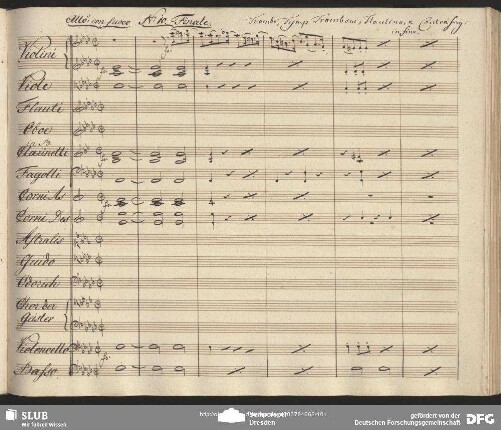 Allo: con fuoco No 10. Finale.
in fine
Violini
Viole
Flauti
Oboe
Clarinetti
Fagotti
Corni As
Corni Des
Astralis
Guido
Odorich
Chor der
Geister
Violoncello
Basso
SLUB
Wir führen Wissen.
Dresden
gefördert von der
Deutschen Forschungsgemeinschaft
DFG